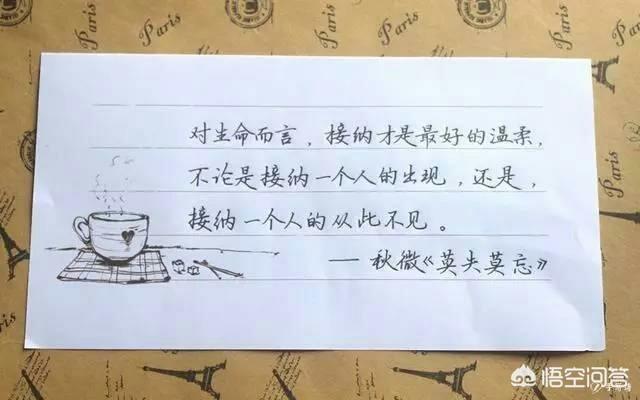 对生命而言，接纳才是最好的温柔，
不论是接纳一个人的出现，还是，
接纳一个人的从此不见。
——秋微《莫失莫忘》
Paris
Paris
Paris
Paris
Paris
Paris
悟空问答